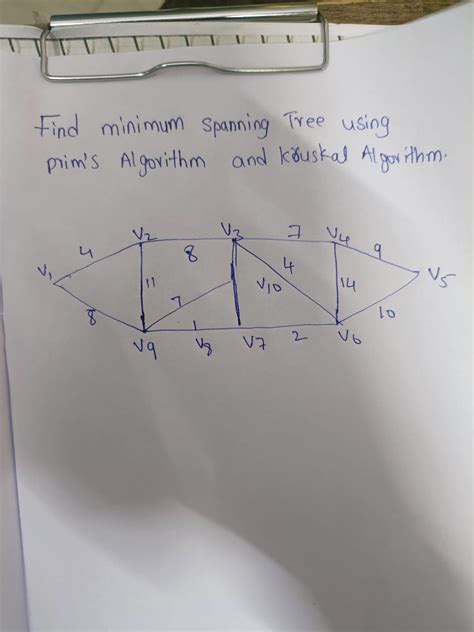 Find minimum spanning Tree using
prim's Algorithm and kruskal Algorithm.
V2 V3 7 V4
4 8 9
V1 11 7 4 14 V5
V10
8 1 10
V9 V8 V7 2 V6